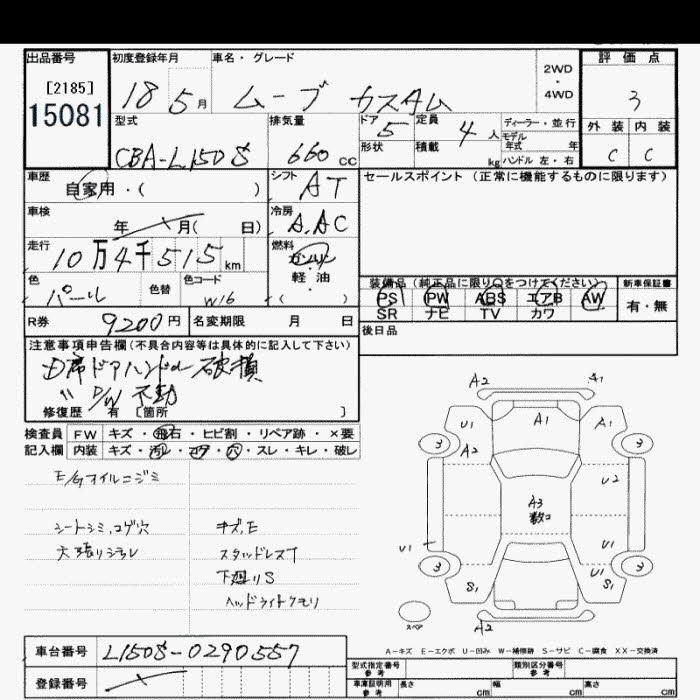 出品番号 初度登録年月 車名・グレード 2WD・4WD 評価点
[2185]
15081
18 5月 ムーブ カスタム 3
型式 排気量 ドア 5 定員 4人 ディーラー・並行 外装 内装
モデル年式 年
CBA-L150S 660 cc 形状 積載 kg ハンドル 左・右 C C
車歴 シフト セールスポイント (正常に機能するものに限ります)
自家用・( ) AT
車検 冷房
年 月( 日) A.AC
走行 燃料
10万4千515km ガソリン
軽・油
( )
色 色替 色コード 装備品(純正品に限り○をつけてください) 新車保証書
パール W16 PS PW ABS エアB AW 有・無
SR ナビ TV カワ
R券 9200円 名変期限 月 日 後日品
注意事項申告欄(不具合内容等は具体的に記入して下さい)
D席ドアハンドル破損
〃 P/W 不動
修復歴 有 [箇所 ]
検査員 FW キズ・飛石・ヒビ割・リペア跡・×要
記入欄 内装 キズ・汚レ・コゲ・穴・スレ・キレ・破レ
E/gオイルニジミ
シートシミ,コゲ穴 キズ,E
天張リシミ スタッドレスT
下廻りS
ヘッドライトクモリ
A2 A1
U1 A1 A1
3 A2 3
U2
A3
数コ
U1 U1
3 3
S1 S1
スペア A2
A−キズ E−エクボ U−凹み W−補修跡 S−サビ C−腐食 XX−交換済
車台番号 L150S-0290557
型式指定番号 参考 類別区分番号 参考
登録番号
車庫証明用 参考 長さ cm 幅 cm 高さ cm